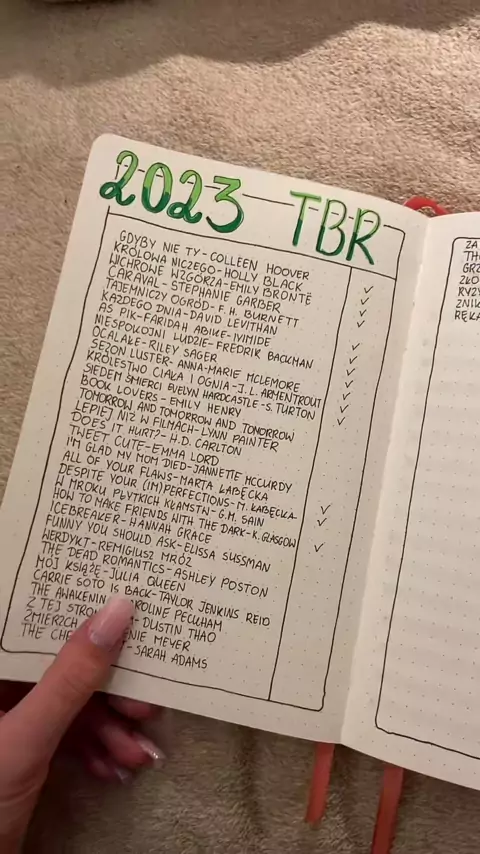 2023 TBR
GDYBY NIE TY - COLLEEN HOOVER
KRÓLOWA NICZEGO - HOLLY BLACK
WICHROWE WZGÓRZA - EMILY BRONTË
CARAVAL - STEPHANIE GARBER
TAJEMNICZY OGRÓD - F.H. BURNETT
KAŻDEGO DNIA - DAVID LEVITHAN
AS PIK - FARIDAH ÀBÍKÉ-ÍYÍMÍDÉ
NIESPOKOJNI LUDZIE - FREDRIK BACKMAN
OCALAŁE - RILEY SAGER
SEZON LUSTER - ANNA-MARIE MCLEMORE
KRÓLESTWO CIAŁA I OGNIA - J.L. ARMENTROUT
SIEDEM ŚMIERCI EVELYN HARDCASTLE - S. TURTON
BOOK LOVERS - EMILY HENRY
TOMORROW AND TOMORROW AND TOMORROW
LEPIEJ NIŻ W FILMACH - LYNN PAINTER
DOES IT HURT? - H.D. CARLTON
TWEET CUTE - EMMA LORD
I'M GLAD MY MOM DIED - JANNETTE MCCURDY
ALL OF YOUR FLAWS - MARTA ŁABĘCKA
DESPITE YOUR (IM)PERFECTIONS - M. ŁABĘCKA
W MROKU PŁYTKICH KŁAMSTW - G.M. SAIN
HOW TO MAKE FRIENDS WITH THE DARK - K. GLASGOW
ICEBREAKER - HANNAH GRACE
FUNNY YOU SHOULD ASK - ELISSA SUSSMAN
WERDYKT - REMIGIUSZ MRÓZ
THE DEAD ROMANTICS - ASHLEY POSTON
MÓJ KSIĄŻĘ - JULIA QUEEN
CARRIE SOTO IS BACK - TAYLOR JENKINS REID
THE AWAKENIN CAROLINE PECKHAM
Z TEJ STRO - DUSTIN THAO
ZMIERZCH ENIE MEYER
THE CHE - SARAH ADAMS
ZA
TH
GRZ
ZŁO
KRZY
ZNIK
RĘKA